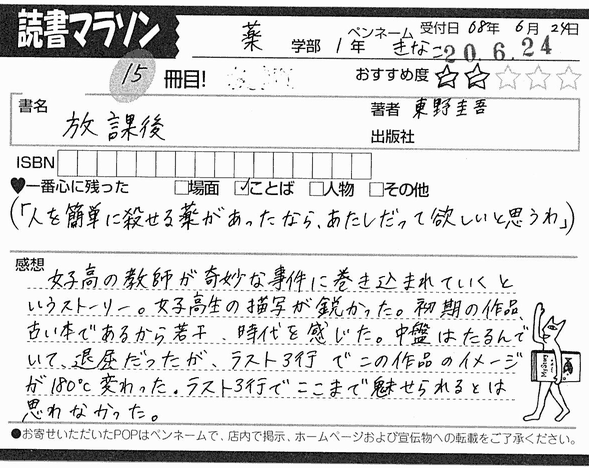 読書マラソン
薬 学部 1年 ペンネーム きなこ 受付日 08年 6月 24日
20.6.24
15 冊目! おすすめ度 ★★☆☆☆
書名 放課後
著者 東野圭吾
出版社
ISBN
♥一番心に残った □場面 ☑ことば □人物 □その他
(「人を簡単に殺せる薬があったなら、あたしだって欲しいと思うわ」)
感想
女子高の教師が奇妙な事件に巻き込まれていくと
いうストーリー。女子高生の描写が鋭かった。初期の作品、
古い本であるから若干、時代を感じた。中盤はたるんで
いて、退屈だったが、ラスト3行でこの作品のイメージ
が180℃変わった。ラスト3行でここまで魅せられるとは
思わなかった。
●お寄せいただいたPOPはペンネームで、店内で掲示、ホームページおよび宣伝物への転載をご了承ください。